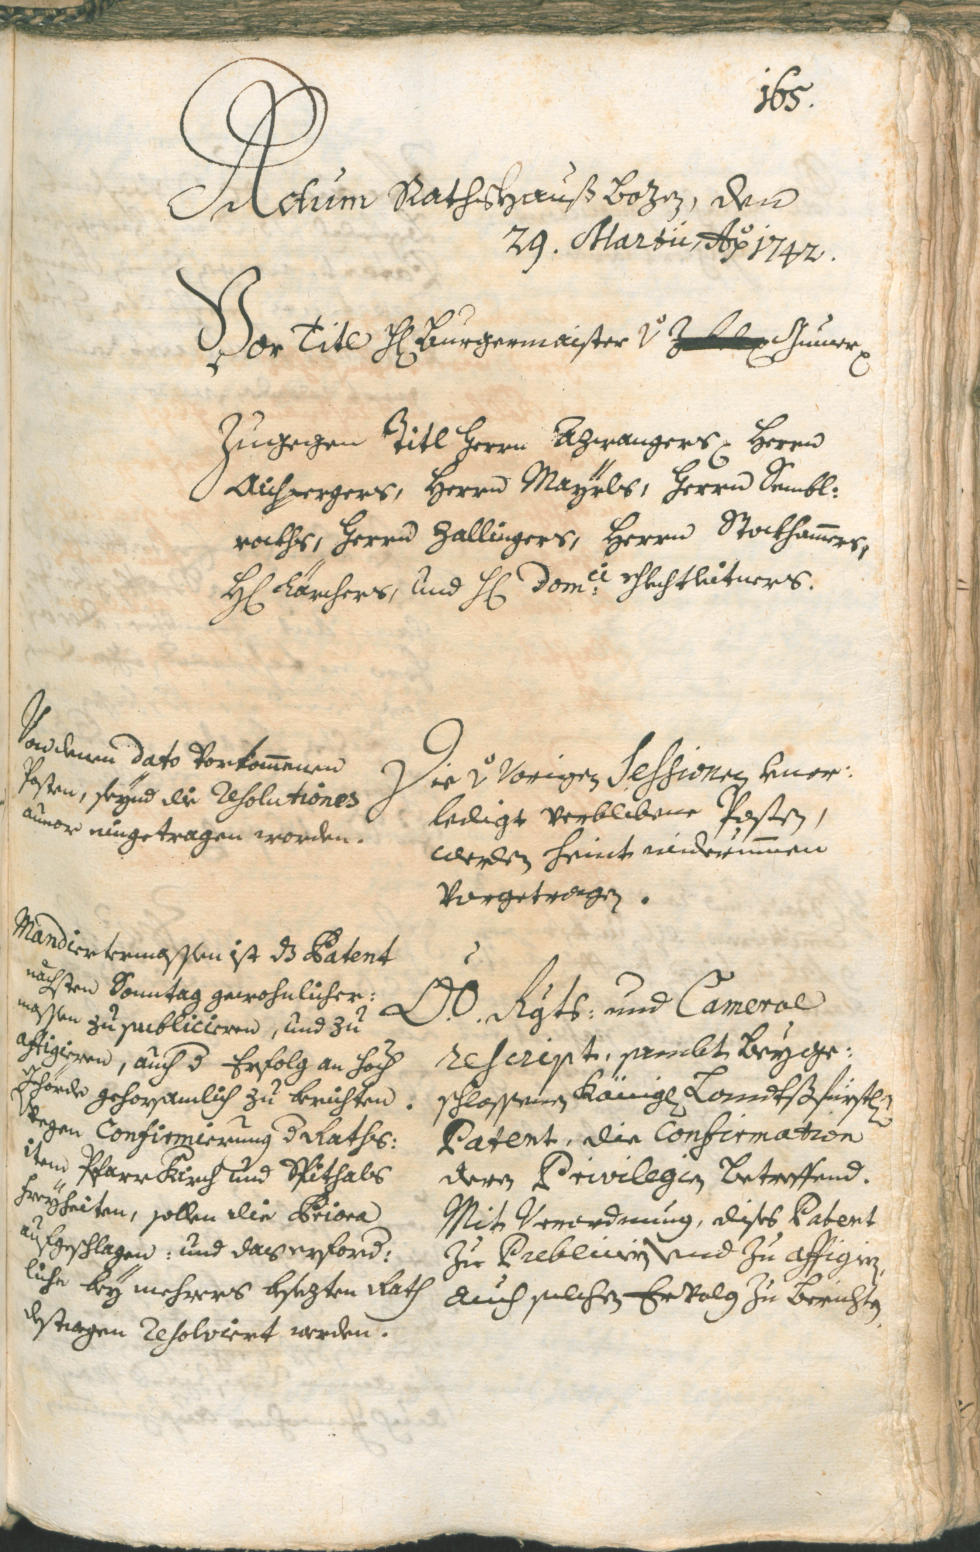 165.
Actum Rathshauß Bozen, den
29. Martii Ao 1742.
Vor Titl H Burgermaister
Zugegen Titl Herrn Azwangers, Herrn
Aichpergers, Herrn Mayrls, Herrn Sembl:
roths, Herrn Zallingers, Herrn Stockhamers,
H Karchers, und H Domci: schlechtleitners.
Von denen dato Vorkommenen
Posten, seynd die Resolutiones
anvor eingetragen worden.
Die Vorigen Sessionen uner:
ledigt verblibene Posten,
werden heint widerummen
Vorgetragen.
Mandiertermassen ist ds Patent
nächsten Sonntag gewohnlicher:
massen zu publicieren, und zu
affigieren, auch d Erfolg an hoch
Behörde gehorsamlich zu berichten.
Wegen Confirmierung d Raths:
item Pfarr Kirch und Spithals
freyheiten, sollen die Priora
aufgeschlagen: und das erford:
liche bey mehrers besezten Rath
destwegen Resolviert werden.
O.Ö. Rgts: und Cameral
rescript, sambt beyge:
schlossenen Königl Landtsfürstl
Patent, die Confirmation
deren Privilegien betreffend.
Mit Verordnung, dises Patent
zu Publicirn und zu affigirn,
auch solchen Ervolg zu berichten.